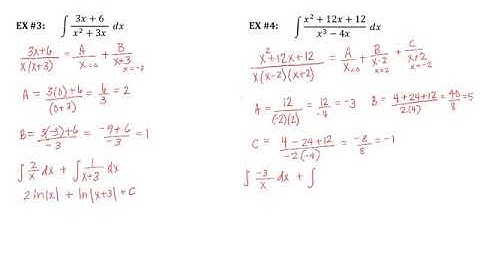 EX #3: ∫ (3x + 6)/(x² + 3x) dx
(3x+6)/(x(x+3)) = A/x + B/(x+3)
x=0 x=-3
A = (3(0)+6)/(0+3) = 6/3 = 2
B = (3(-3)+6)/-3 = (-9+6)/-3 = 1
∫ 2/x dx + ∫ 1/(x+3) dx
2 ln|x| + ln|x+3| + C
EX #4: ∫ (x² + 12x + 12)/(x³ − 4x) dx
(x²+12x+12)/(x(x-2)(x+2)) = A/x + B/(x-2) + C/(x+2)
x=0 x=2 x=-2
A = 12/((-2)(2)) = 12/-4 = -3 B = (4+24+12)/(2(4)) = 40/8 = 5
C = (4-24+12)/(-2(-4)) = -8/8 = -1
∫ -3/x dx + ∫